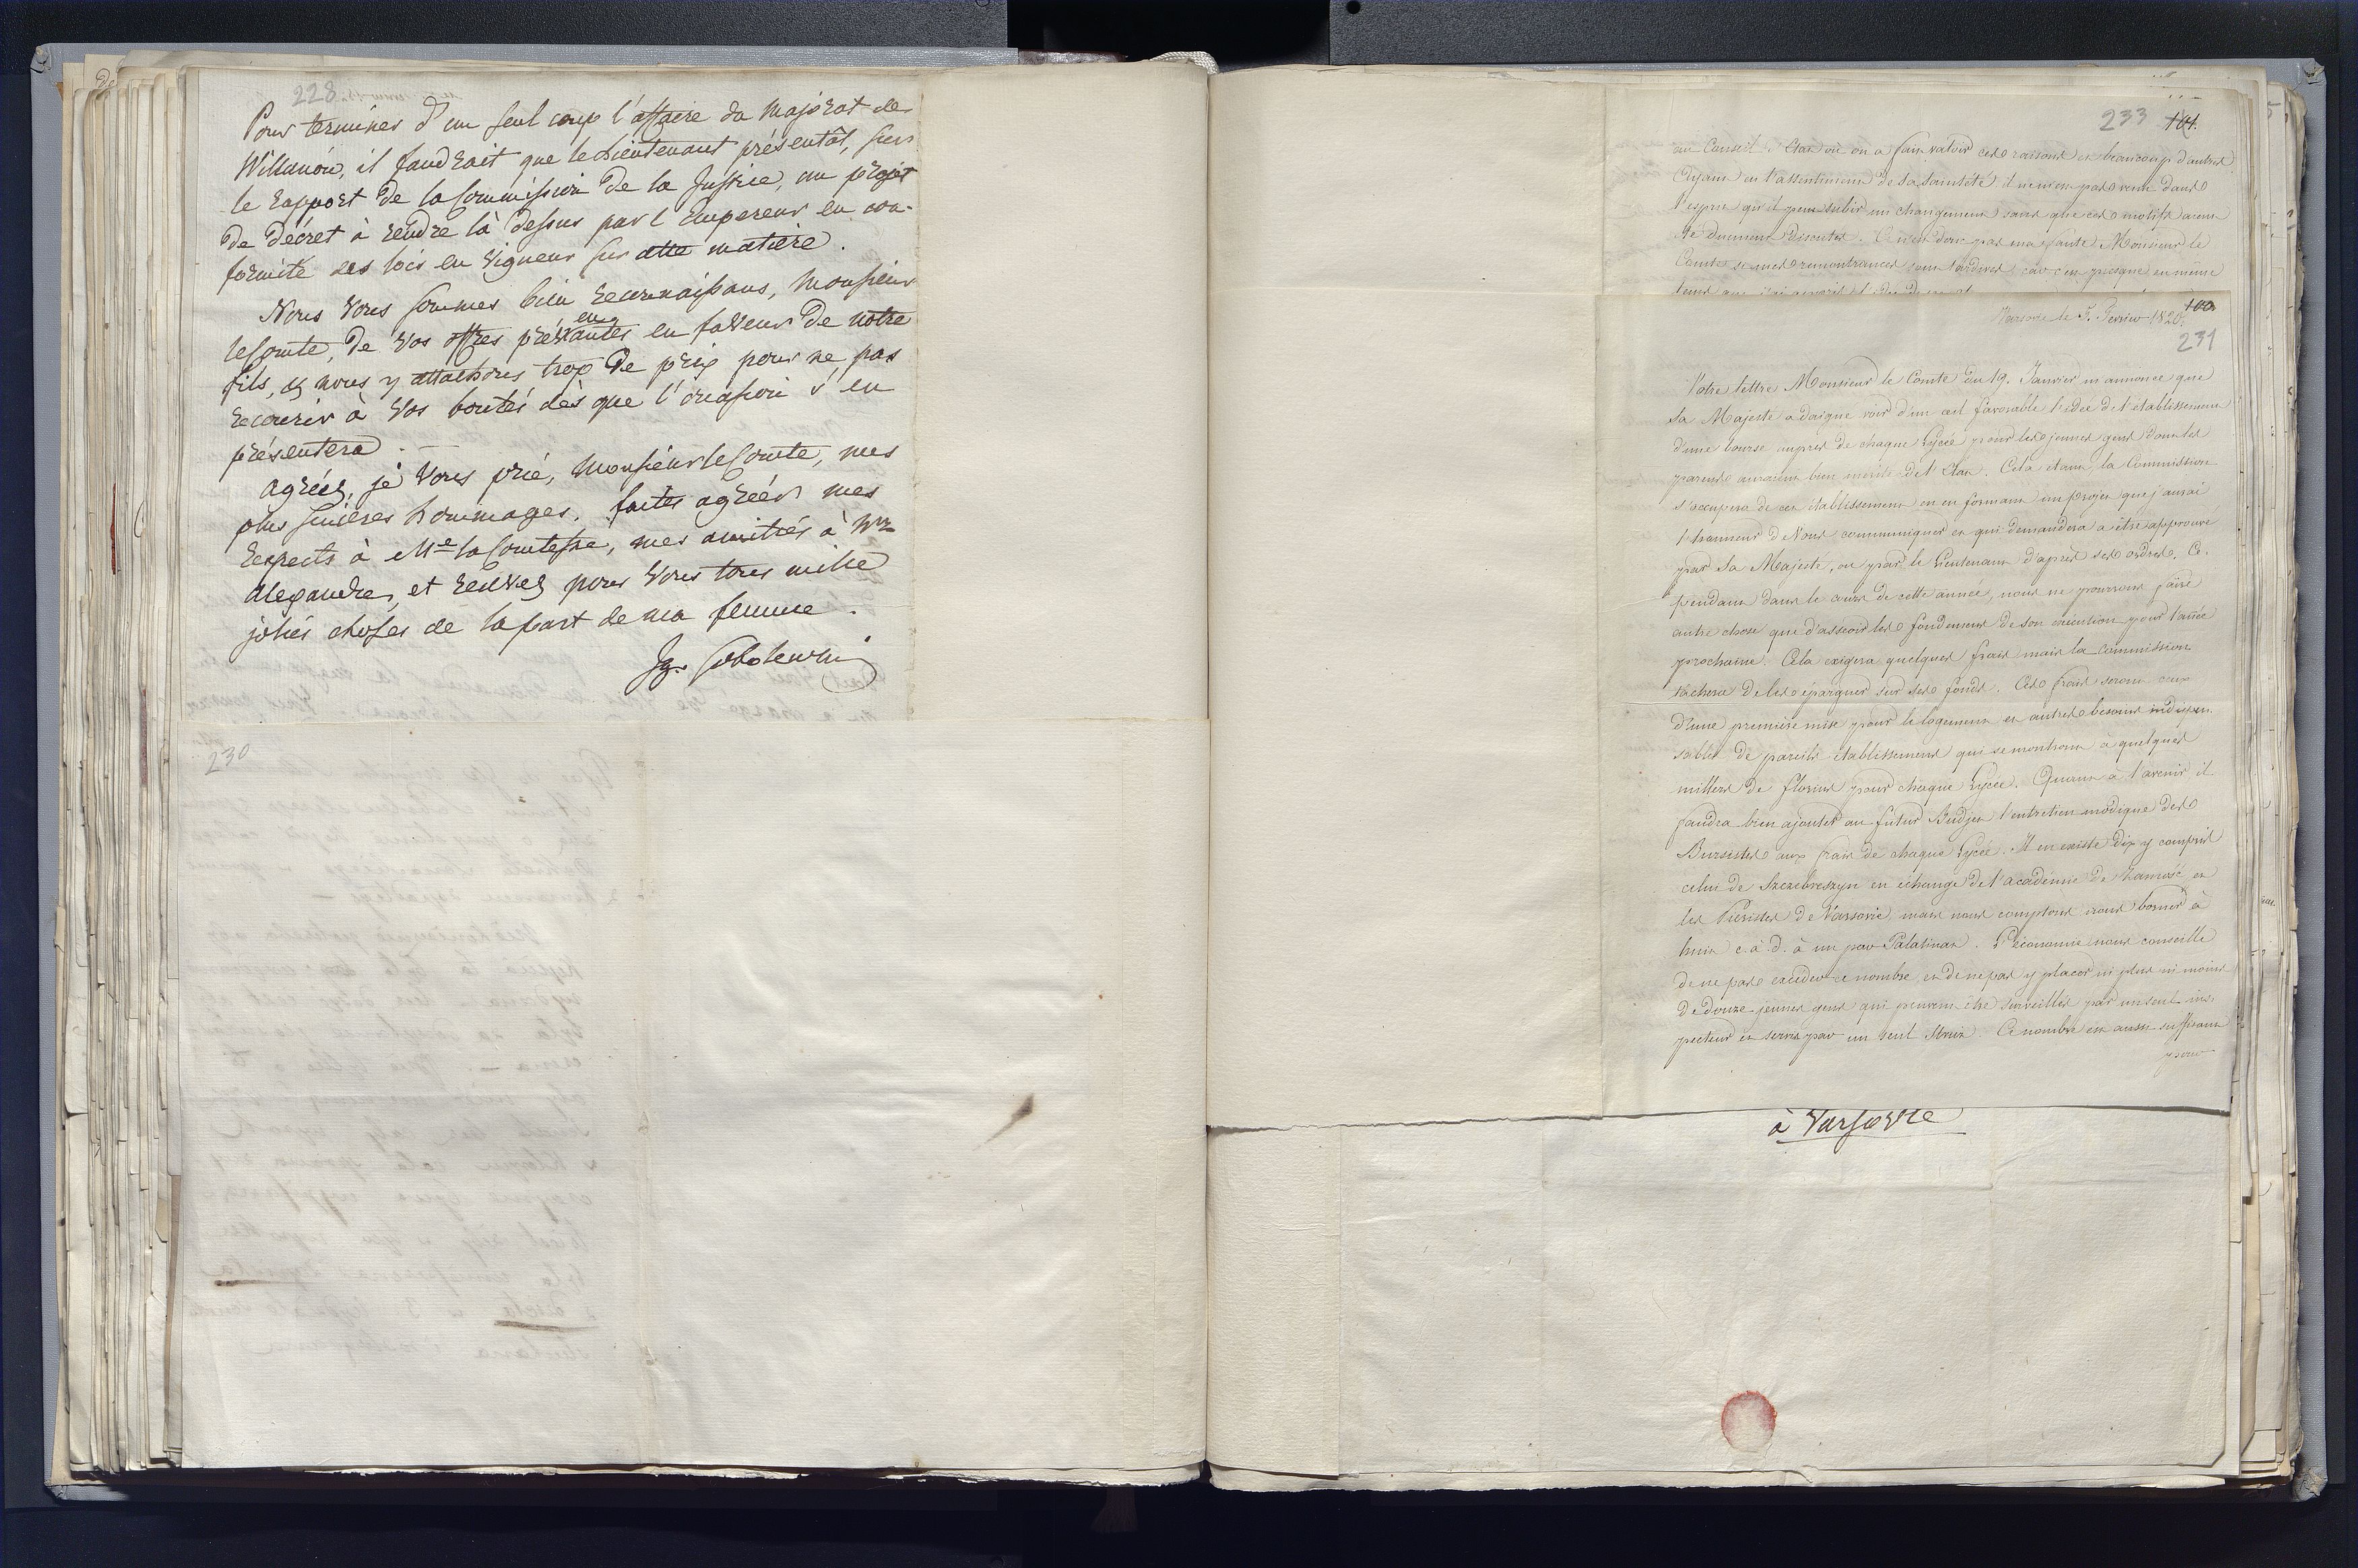 228
Pour terminer d'un seul coup l'affaire du Majorat de
Willanów, il faudrait que le Lieutenant présentât, sur
le rapport de la Commission de la Justice, un projet
de décret à rendre là dessus par l'Empereur en con-
formité des lois en vigueur sur cette matière.
Nous Vous sommes bien reconnaissans, Monsieur
le Comte, de Vos offres prévenantes en faveur de notre
fils, & nous y attachons trop de prix pour ne pas
recourir à Vos bontés dès que l'occasion s'en
présentera. —
Agréez, je Vous prie, Monsieur le Comte, mes
plus sincères hommages, faites agréér mes
respects à Me la Comtesse, mes amitiés à Mr
Alexandre, et recevez pour Vous tous mille
jolies choses de la part de ma femme.
Ig. Sobolewski
230
233 101.
au Conseil d'Etat où on a fait valoir ces raisons et beaucoup d'autres
Ayant eu l'assentiment de Sa Sainteté il ne m'est pas venu dans
l'esprit qu'il peut subir un changement sans que ces motifs aient
été dument discutés. Ce n'est donc pas ma faute Monsieur le
Comte si mes remontrances sont tardives, car c'est presque en même
100
Varsovie le 5. Fevrier 1820.
231
Votre lettre Monsieur le Comte du 19. Janvier m'annonce que
Sa Majesté a daigné voir d'un œil favorable l'idée de l'établissement
d'une bourse auprès de chaque Lycée pour les jeunes gens dont les
parents auraient bien mérité de l'Etat. Cela étant, la Commission
s'occupera de cet établissement en en formant un projet que j'aurai
l'honneur de Vous communiquer et qui demandera a être approuvé
par Sa Majesté, ou par le Lieutenant d'après ses ordres. Ce-
pendant dans le cours de cette année, nous ne pourrons faire
autre chose que d'asseoir les fondemens de son exécution pour l'année
prochaine. Cela exigera quelques frais mais la Commission
tâchera de les épargner sur ses fonds. Ces frais seront ceux
d'une première mise pour le logement et autres besoins indispen-
sables de pareils établissemens qui se montront à quelques
milliers de florins pour chaque Lycée. Quant à l'avenir il
faudra bien ajouter au futur Budjet l'entretien modique des
Bursistes aux frais de chaque Lycée. Il en existe dix y compris
celui de Szczebrzeszyn en échange de l'académie de Zamość et
les Piaristes de Varsovie, mais nous comptons nous borner à
huit c. à. d. à un par Palatinat. L'économie nous conseille
de ne pas excéder ce nombre, et de ne pas y placer ni plus ni moins
de douze jeunes gens qui peuvent être surveillés par un seul ins-
pecteur et servis par un seul Struż. Ce nombre est aussi suffisant
pour
à Varsovie